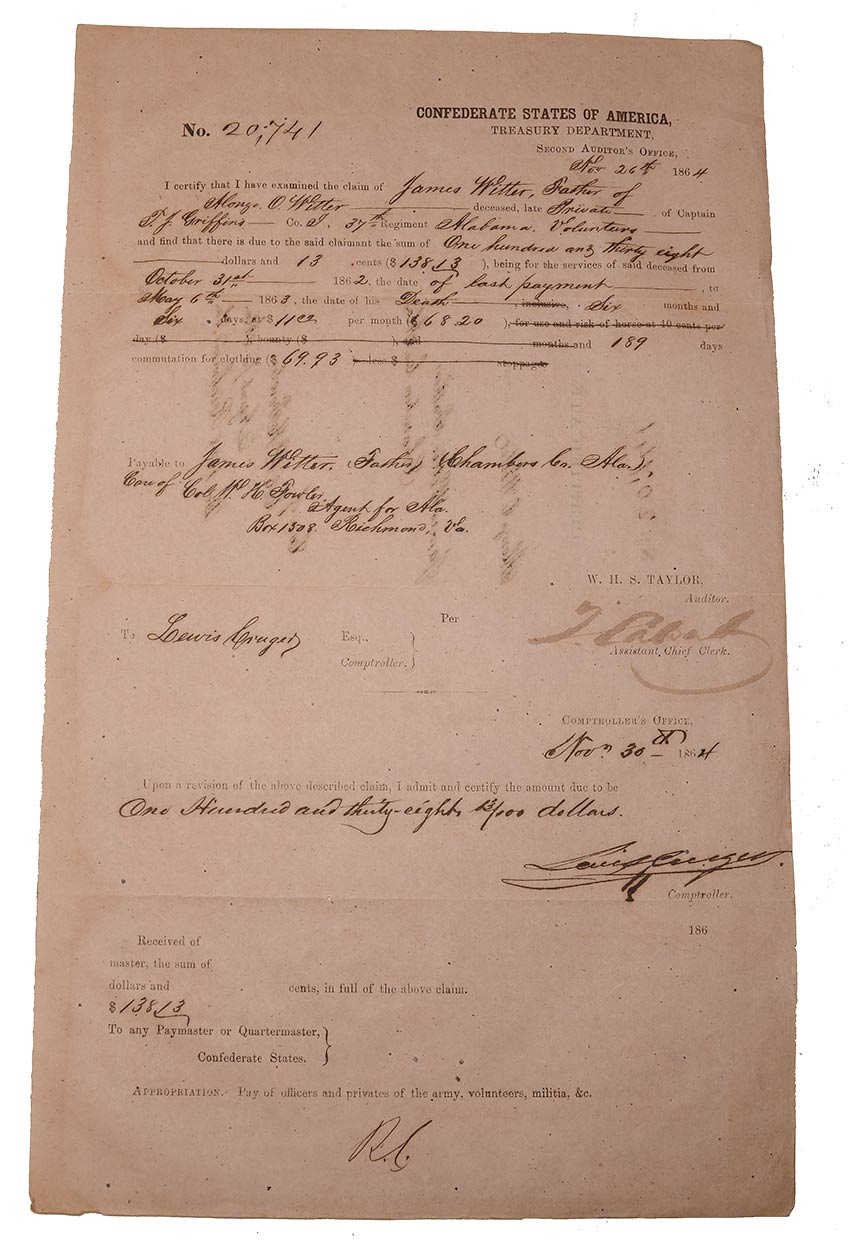 No. 20,741
CONFEDERATE STATES OF AMERICA,
TREASURY DEPARTMENT,
SECOND AUDITOR'S OFFICE,
Nov 26th 1864
I certify that I have examined the claim of James Witter, Father of
Alonzo. O. Witter deceased, late Private of Captain
T. J. Griffins Co. , 37th Regiment Alabama. Volunteers
and find that there is due to the said claimant the sum of One hundred and thirty eight
dollars and 13 cents ($138.13 ), being for the services of said deceased from
October 31st 1862, the date of last payment , to
May 6th 1863, the date of his Death inclusive, Six months and
Six days, at $11 00 per month ($68.20 ), for use and risk of horse at 40 cents per
day ($ ), bounty ($ ), and months and 189 days
commutation for clothing ($69.93 less $ stoppages
Payable to James Witter, (Father) (Chambers Co. Ala.),
Care of Col. W. H. Fowler,
Agent for Ala.
Box 1508. Richmond, Va.
W. H. S. TAYLOR,
Auditor.
Per
To Lewis Cruger Esq.,
Comptroller.
Assistant Chief Clerk.
COMPTROLLER'S OFFICE,
Nov. 30th 1864
Upon a revision of the above described claim, I admit and certify the amount due to be
One Hundred and thirty-eight & 13/100 dollars.
Lewis Cruger.
Comptroller.
186
Received of
master, the sum of
dollars and cents, in full of the above claim.
$138.13
To any Paymaster or Quartermaster,
Confederate States.
APPROPRIATION. Pay of officers and privates of the army, volunteers, militia, &c.
R.C.